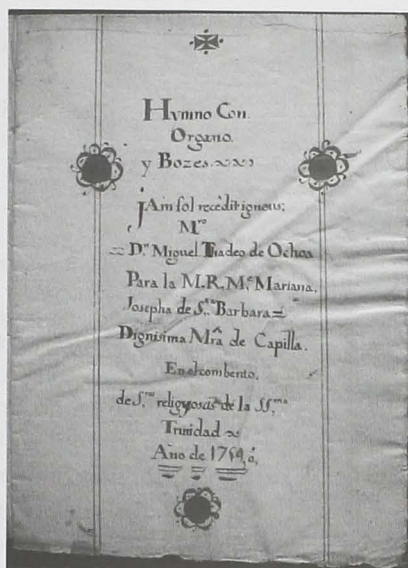 Hymno Con.
Organo.
y Bozes.
Jam sol recedit igneus;
M.ro
D.n Miguel Tadeo de Ochoa
Para la M.R.M.e Mariana,
Josepha de S.ta Barbara
Dignisima Mrâ de Capilla.
En el combento,
de S.ras religyosas de la SS.ma
Trinidad
Año de 1759